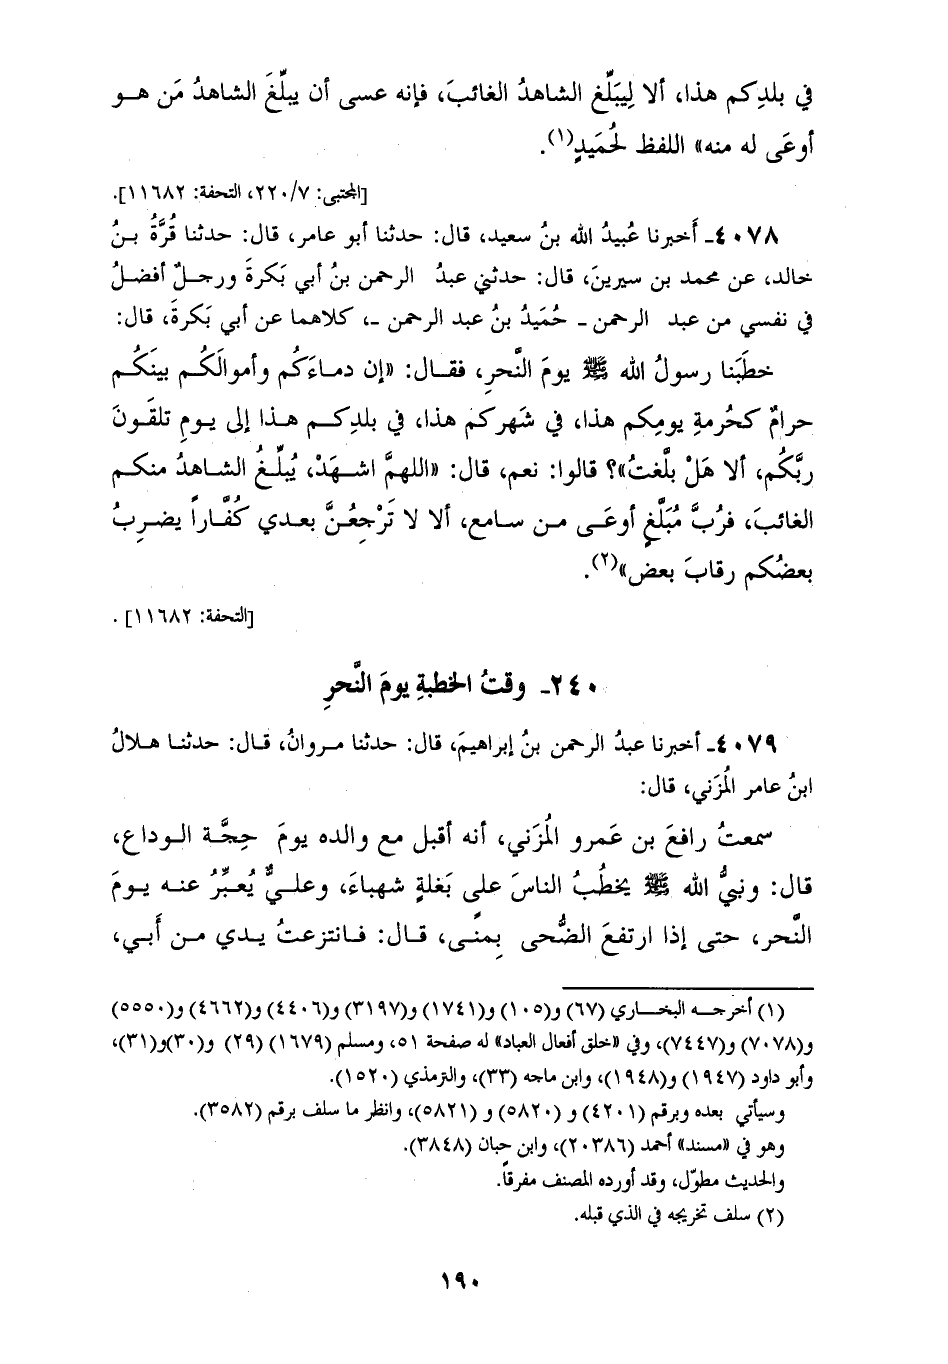 في بلدِكم هذا، ألا لِيَبَلِّغ الشاهدُ الغائبَ، فإنه عسى أن يبلِّغَ الشاهدُ مَن هـو
أوعَى له منه» اللفظ لحُمَيدٍ(١).
[المجتبى: ٢٢٠/٧، التحفة: ١١٦٨٢].
٤٠٧٨ـ أَخبرنا عُبيدُ الله بنُ سعيد، قال: حدثنا أبو عامر، قال: حدثنا قُرَّةُ بـنُ
خالد، عن محمد بن سيرينَ، قال: حدثني عبدُ الرحمن بنُ أبي بَكرةَ ورجـلٌ أفضلُ
في نفسي من عبد الرحمن ـ حُمَيدُ بنُ عبد الرحمن ـ، كلاهما عن أبي بَكرةَ، قال:
خطَبَنا رسولُ الله ﷺ يومَ النَّحرِ، فقـال: «إن دماءَكُم وأموالَكُـم بينَكُـم
حرامٌ كحُرمةِ يومِكم هذا، في شَهرِكم هذا، في بلدِكـم هـذا إلى يـومِ تلقَـونَ
ربَّكُم، ألا هَلْ بلَّغتُ»؟ قالوا: نعم، قال: «اللهمَّ اشـهَدْ، يُبلِّـغُ الشـاهدُ منكـم
الغائبَ، فرُبَّ مُبَلَّغٍ أوعَـى مـن سـامع، ألا لا تَرْجِعُـنَّ بعـدي كُفَّـاراً يضـرِبُ
بعضُكم رقابَ بعض»(٢).
[التحفة: ١١٦٨٢] .
٢٤٠ـ وقتُ الخطبةِ يومَ النَّحرِ
٤٠٧٩ـ أخبرنا عبدُ الرحمن بنُ إبراهيمَ، قال: حدثنا مـروانُ، قـال: حدثنـا هـلالُ
ابنُ عامر المُزَني، قال:
سمعتُ رافعَ بن عَمرو المُزَني، أنه أقبل مع والده يومَ حِجَّة الـوداع،
قال: ونبيُّ الله ﷺ يخطُبُ الناسَ على بَغلةٍ شهباءَ، وعلـيٌّ يُعـبِّرُ عنـه يـومَ
النَّحر، حتى إذا ارتفعَ الضُّحى بِمنًـى، قـال: فـانتزعتُ يـدي مـن أَبي،
(١) أخرجـه البخـاري (٦٧) و(١٠٥) و(١٧٤١) و(٣١٩٧) و(٤٤٠٦) و(٤٦٦٢) و(٥٥٥٠)
و(٧٠٧٨) و(٧٤٤٧)، وفي «خلق أفعال العباد» له صفحة ٥١، ومسلم (١٦٧٩) (٢٩) و(٣٠)و(٣١)،
وأبو داود (١٩٤٧) و(١٩٤٨)، وابن ماجه (٣٣)، والترمذي (١٥٢٠).
وسيأتي بعده وبرقم (٤٢٠١) و (٥٨٢٠) و (٥٨٢١)، وانظر ما سلف برقم (٣٥٨٢).
وهو في «مسند» أحمد (٢٠٣٨٦)، وابن حبان (٣٨٤٨).
والحديث مطوّل، وقد أورده المصنف مفرقاً.
(٢) سلف تخريجه في الذي قبله.
١٩٠